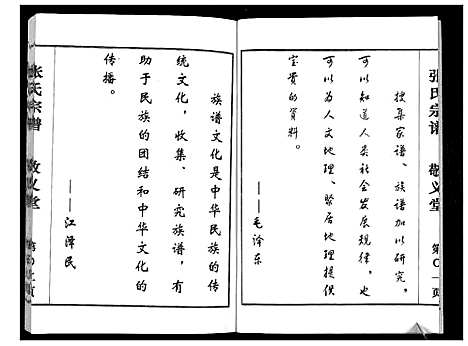 张氏宗谱 敬义堂
搜集家谱、族谱加以研究，
可以知道人类社会发展规律，也
可以为人文地理、聚居地理提供
宝贵的资料。
——毛泽东
族谱文化是中华民族的传
统文化，收集、研究族谱，有
助于民族的团结和中华文化的
传播。
——江泽民
张氏宗谱 敬义堂